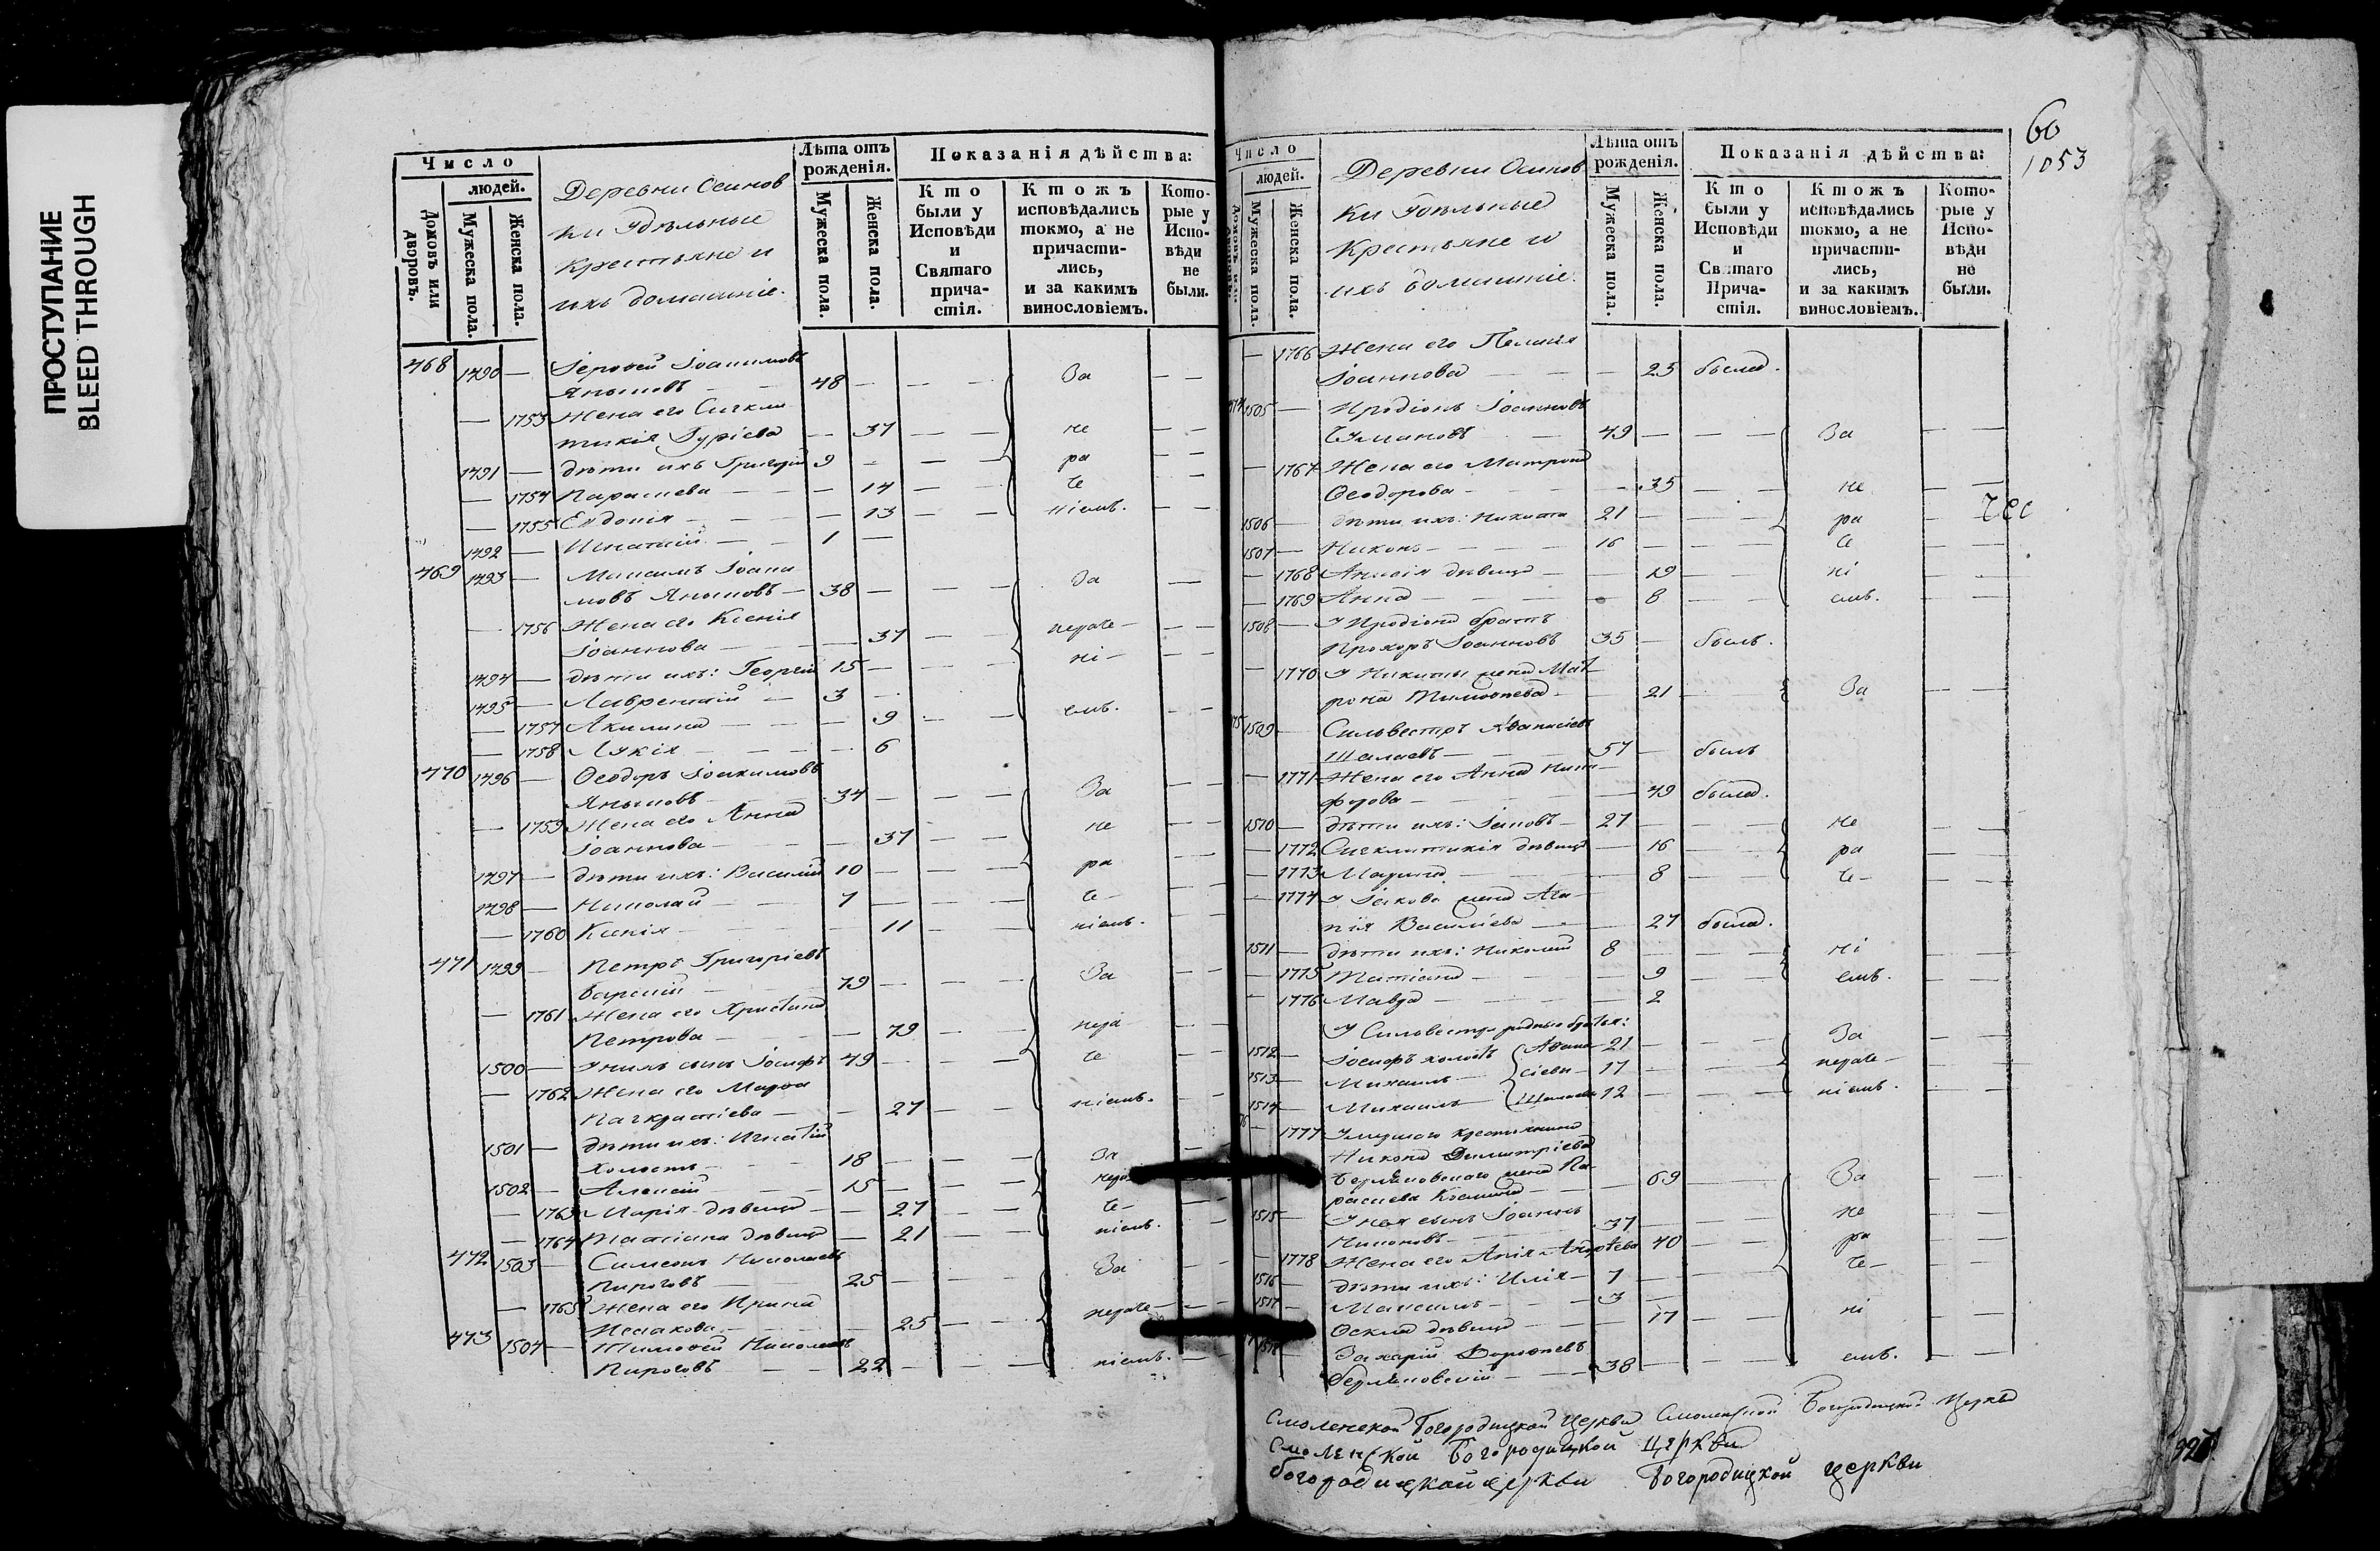 ПРОСТУПАНИЕ
BLEED THROUGH
Число
людей.
Домовъ или дворовъ.
Мужеска пола.
Женска пола.
Деревни Осинов
ки Удѣльные
Крестьяне и
ихъ домашніе.
Лѣта отъ рожденія.
Мужеска пола.
Женска пола.
Показанія дѣйства:
Кто были у Исповѣди и Святаго причастія.
Ктожъ исповѣдались токмо, а не причастились, и за какимъ винословіемъ.
Которые у Исповѣди не были.
468 1490 — Іероѳей Іоакимовъ
Яныповъ — 48 — — — За — —
— 1753 Жена его Сигкли
тикія Гуріева — 37 — — не — —
1491 — дѣти ихъ Григорій 9 — — — ра — —
— 1754 Параскева — — — 14 — — че — —
— 1755 Евдокія — — — 13 — — ніемъ. — —
1492 — Игнатій — — 1 —
469 1493 — Максимъ Іоаки
мовъ Яныповъ — 38 — — — За —
— 1756 Жена его Ксенія
Іоаннова — — 37 — — нераче — — —
1494 — дѣти ихъ: Георгій 15 — — — ні — — —
1495 — Лаврентій — 3 —
— 1757 Акилина — — — 9 — — емъ. — —
— 1758 Лукія — — — 6
470 1496 — Ѳеодоръ Іоакимовъ
Яныповъ — 34 — — — За — —
— 1759 Жена его Анна
Іоаннова — — 37 — — не — —
1497 — дѣти ихъ: Василій 10 — — — ра — —
1498 — Николай — — 7 — — — че — — —
— 1760 Ксенія — — — 11 — — ніемъ. — —
471 1499 — Петръ Григоріевъ
79 — — — За — —
— 1761 Жена его Христина
Петрова — — 79 — — нера — —
1500 — У нихъ сынъ Іосифъ 49 — — — че — —
— 1762 Жена его Марѳа
Панкратіева — — 27 — — ніемъ. — —
1501 — дѣти ихъ: Игнатій
холостъ — 18 — — — За —
1502 — Алексій — 15 — — — нера
— 1763 Марія дѣвица — — 27 — — че —
— 1764 Татіана дѣвица — 21 — — ніемъ. —
472 1503 — Симеонъ Николаевъ
Пироговъ — 25 — — — За —
— 1765 Жена его Ирина
Исаакова — — 25 — — нераче — — —
473 1504 — Тимоѳей Николаевъ
Пироговъ — — 22 — — — ніемъ. — —
60
1053
Число
людей.
Мужеска пола.
Женска пола.
Деревни Осинов
ки Удѣльные
Крестьяне и
ихъ домашніе.
Лѣта отъ рожденія.
Мужеска пола.
Женска пола.
Показанія дѣйства:
Кто были у Исповѣди и Святаго Причастія.
Ктожъ исповѣдались токмо, а не причастились, и за какимъ винословіемъ.
Которые у Исповѣди не были.
— 1766 Жена его Пелагія
Іоаннова — — — 23 была.
1505 — Иродіонъ Іоанновъ
49 — — — За — —
— 1767 Жена его Матрона
Ѳеодорова — — 35 — — не — —
1506 — дѣти ихъ: Никита 21 — — — ра — —
1507 — Никонъ — — 16 — — — че — —
— 1768 Анисія дѣвица — — 19 — — ні — —
— 1769 Анна — — — 8 — — емъ. — —
1508 — У Иродіона братъ
Прохоръ Іоанновъ 35 — былъ.
— 1770 У Никиты жена Мат
рона Тимоѳеева — — 21 — — За — —
1509 — Сильвестръ Аѳанасіевъ
Шалаевъ — — 57 — былъ
— 1771 Жена его Анна Ники
форова — — — 49 была.
1510 — дѣти ихъ: Іаковъ — 27 — — — не — —
— 1772 Сигклитикія дѣвица — 16 — — ра — —
— 1773 Марина — — — 8 — — че — — —
— 1774 У Іакова жена Ага
пія Василіева — — 27 была.
1511 — дѣти ихъ: Николай 8 — — — ні — —
— 1775 Татіана — — 9 — — емъ. — —
— 1776 Мавра — — — 2
У Сильвестра родные братья:
1512 — Іосифъ холостъ Аѳана 21 — — — За — —
1513 — Михаилъ — сіевы — 17 — — — нераче — — —
1514 — Михаилъ — Шалаевы 12 — — — ніемъ. — —
— 1777 Умершаго крестьянина
Никона Димитріева
жена Па
раскева 69 — — За — —
1515 — У нея сынъ Іоаннъ
Никоновъ — — 37 — — — не — —
— 1778 Жена его Андреева 40 — — ра — —
1516 — дѣти ихъ: Илія — 7 — — — че — — —
1517 — Максимъ — — 3 —
Ѳекла дѣвица — — 17 — — ні — —
Захарій Дороѳеевъ
38 — — — емъ. — —
Смоленской Богородицкой Церкви Смоленской Богородицкой Церкви
Смоленской Богородицкой Церкви
Богородицкой церкви Богородицкой церкви